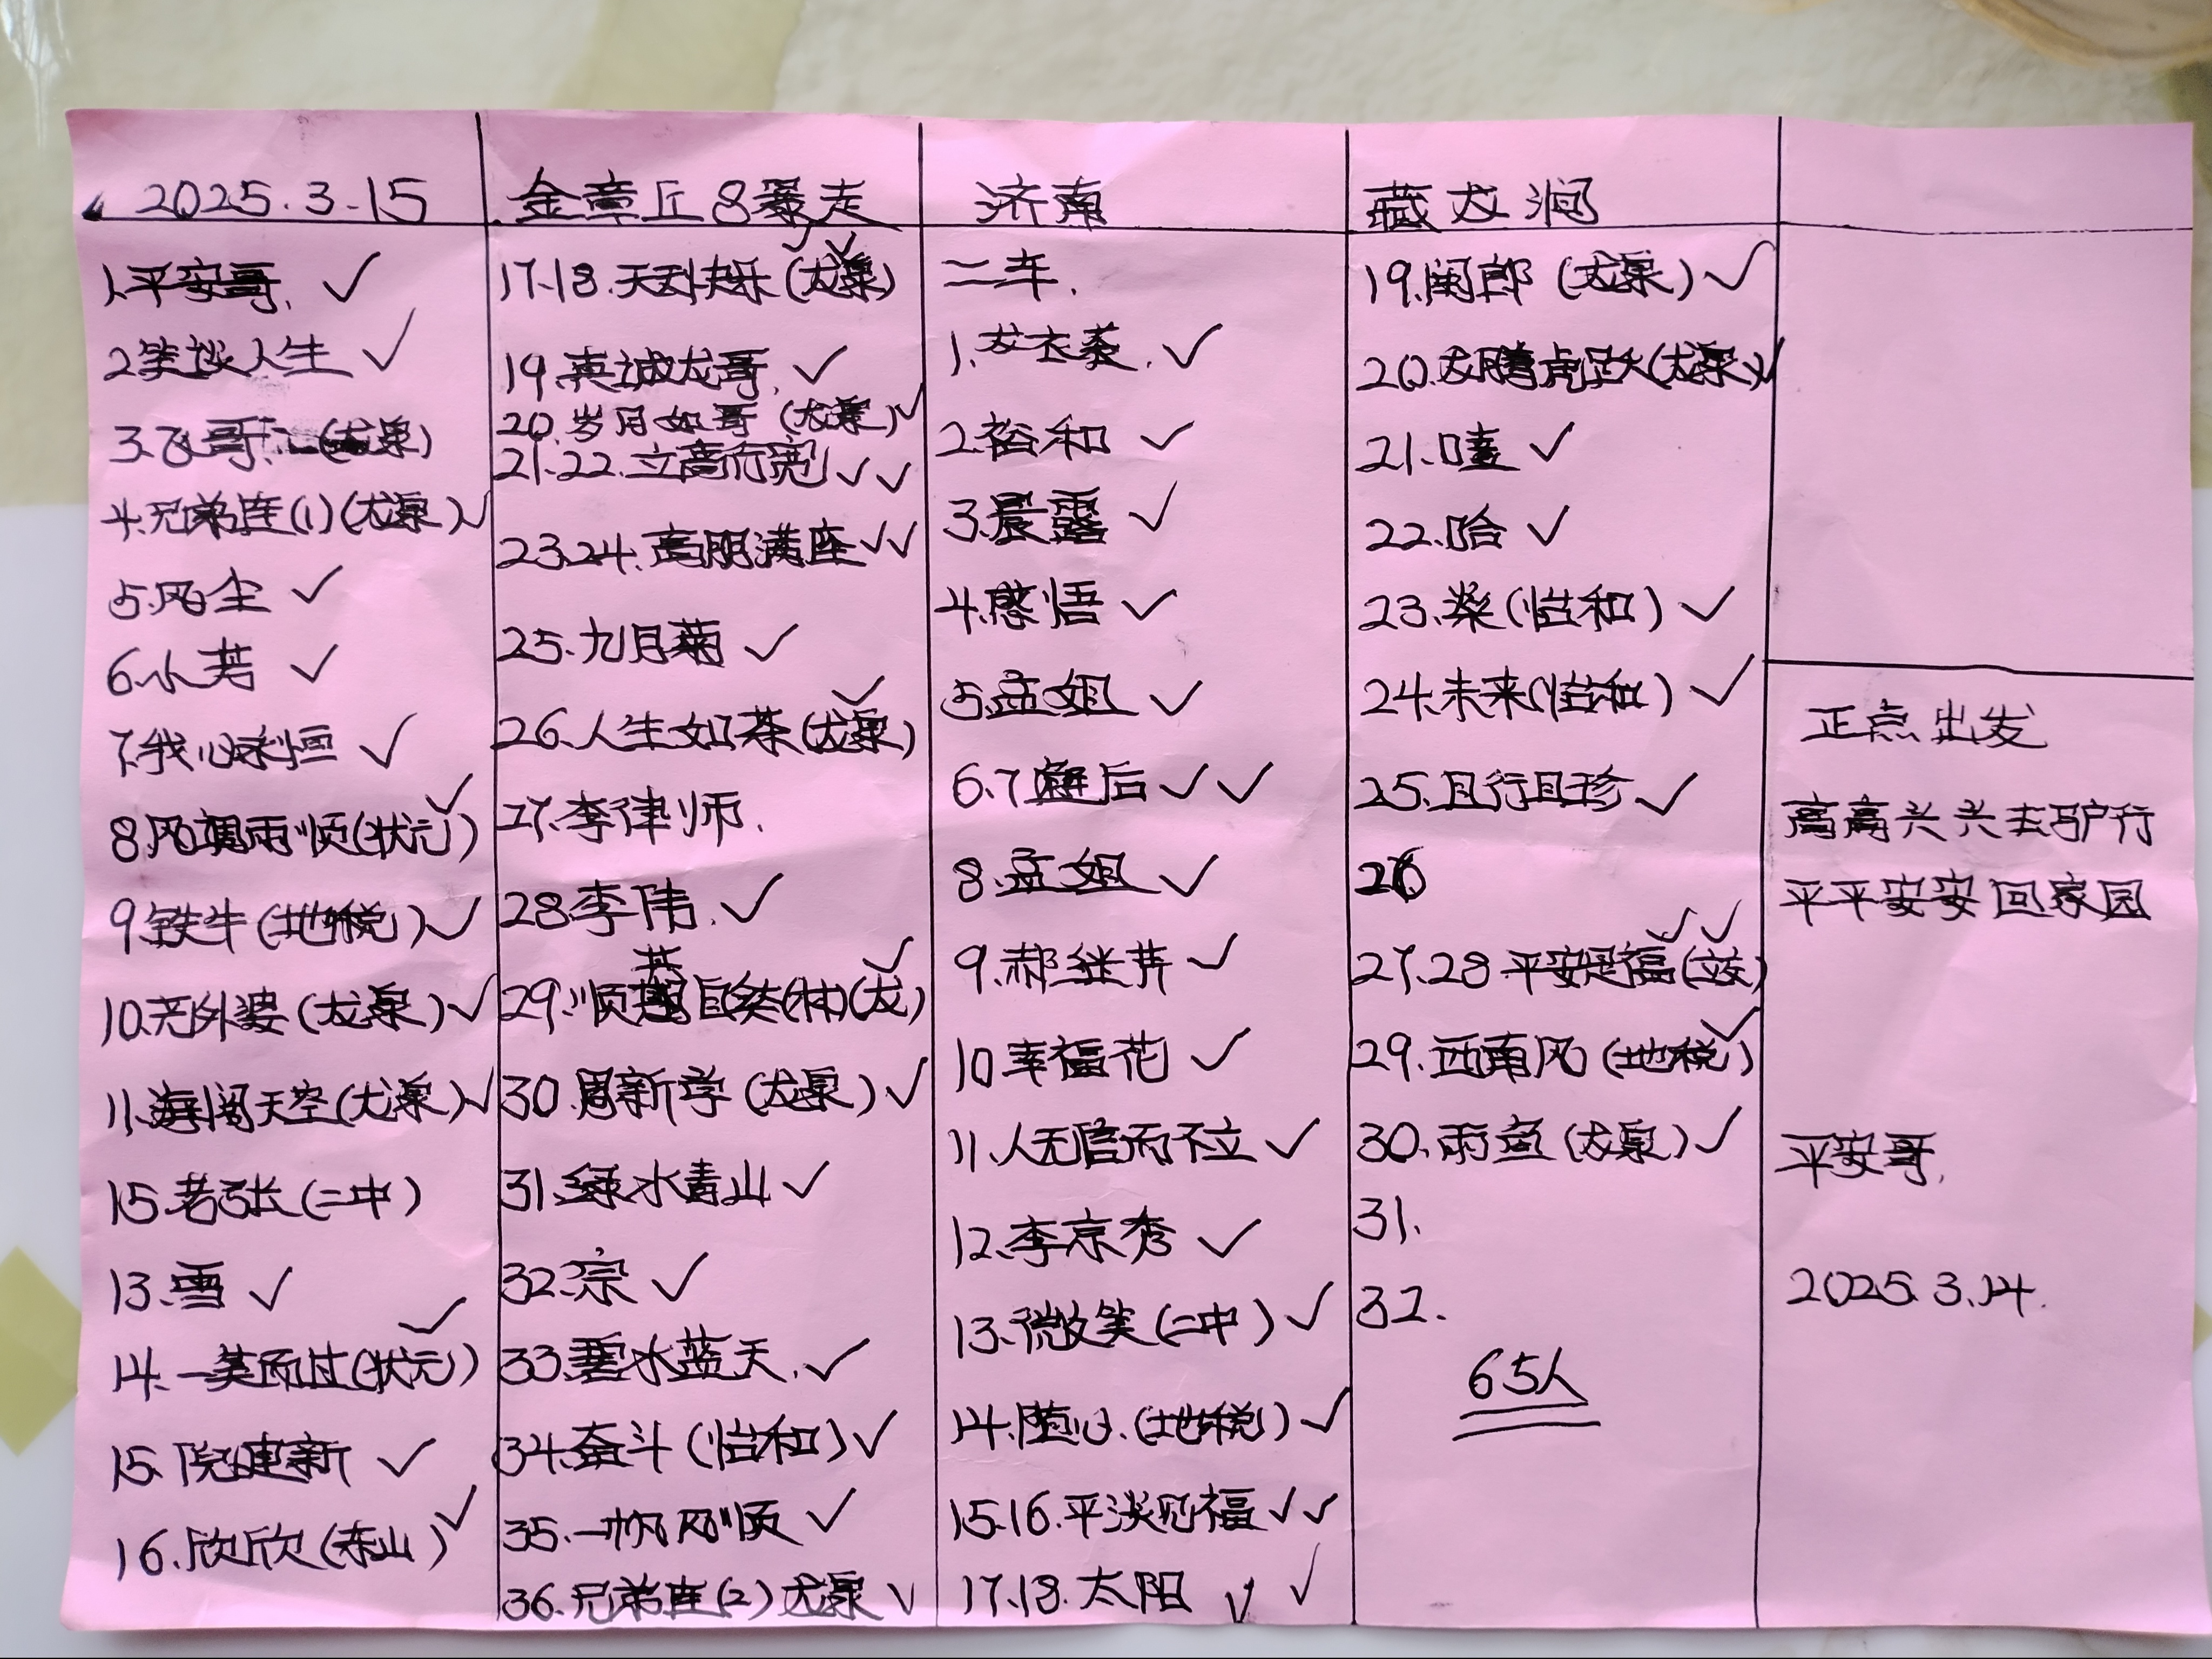 2025.3.15
金章丘8暴走
济南
藏龙涧
1.平安哥. ✓
2.笑谈人生 ✓
3.飞哥 (龙泉)
4.兄弟连(1)(龙泉)✓
5.风尘 ✓
6.小芳 ✓
7.我心永恒 ✓
8.风调雨顺(状元)✓
9.铁牛(地税)✓
10.老外婆(龙泉)✓
11.海阔天空(龙泉)✓
15.老张(二中)
13.雪 ✓
14.一笑而过(状元)✓
15.院建新 ✓
16.欣欣(东山)✓
17.18.天天快乐(龙泉)✓✓
19.真诚龙哥. ✓
20.岁月如哥(龙泉)✓
21.22.立高行宽 ✓✓
23.24.高朋满座 ✓✓
25.九月菊 ✓
26.人生如茶(龙泉)✓
27.李律师.
28.李伟. ✓
29.顺其自然(林)(龙)✓
30.周新学(龙泉)✓
31.绿水青山 ✓
32.宗 ✓
33.碧水蓝天. ✓
34.奋斗(怡和)✓
35.一帆风顺 ✓
36.兄弟连(2)龙泉 ✓
二车.
1.龙衣柔. ✓
2.裕和 ✓
3.晨露 ✓
4.感悟 ✓
5.孟姐 ✓
6.7邂后 ✓✓
8.孟姐 ✓
9.郝继芹 ✓
10.幸福花 ✓
11.人无信而不立 ✓
12.李京秀 ✓
13.微笑(二中)✓
14.随心.(地税)✓
15.16.平淡见福 ✓✓
17.18.太阳 ✓✓
19.闺郎(龙泉)✓
20.龙腾虎跃(龙泉)✓
21.嘻 ✓
22.哈 ✓
23.柴(怡和)✓
24.未来(怡和)✓
25.且行且珍 ✓
26
27.28平安是福(立交)✓✓
29.西南风(地税)✓
30.雨鱼(龙泉)✓
31.
32.
65人
正点出发
高高兴兴去驴行
平平安安回家园
平安哥.
2025.3.14.